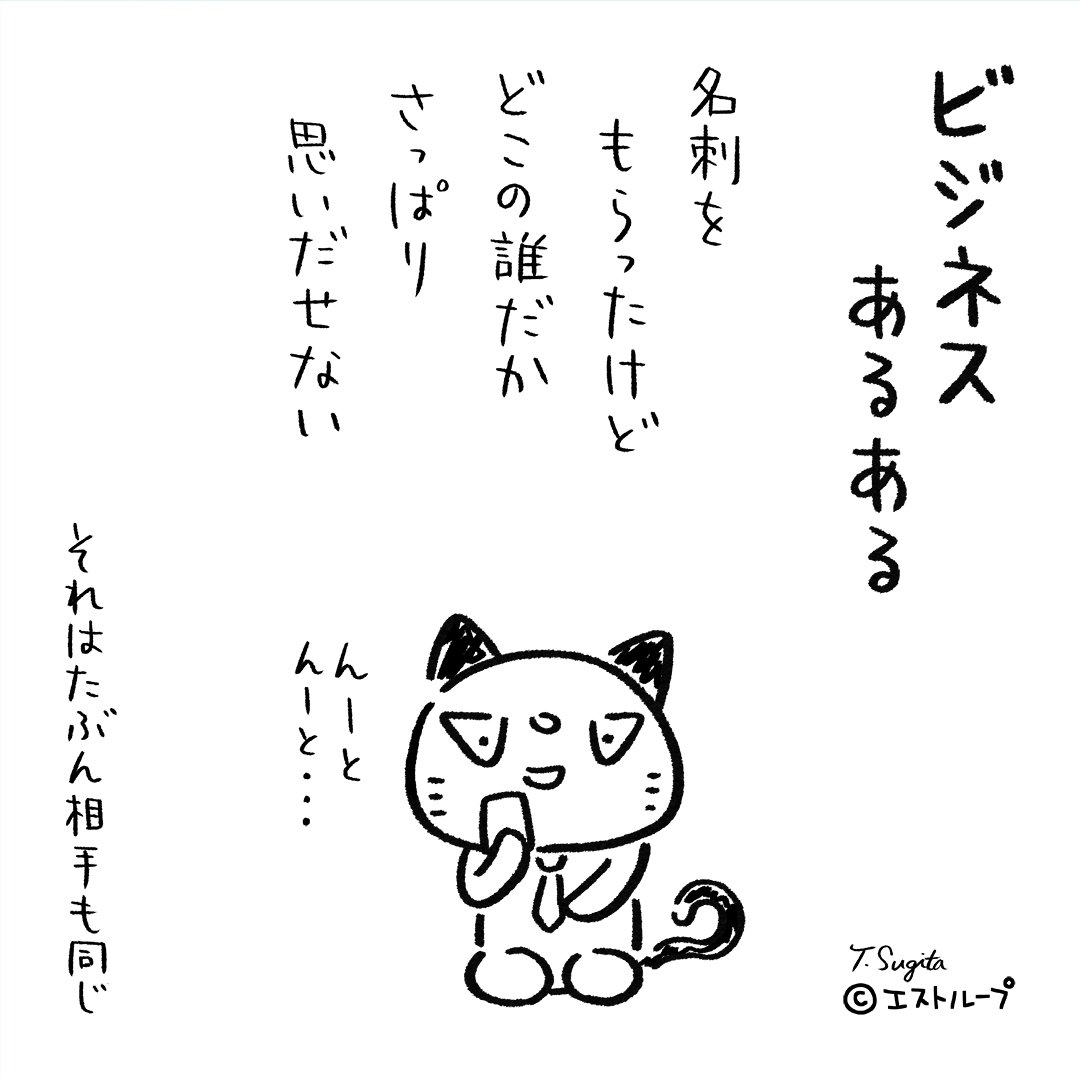 ビジネス
あるある
名刺を
もらったけど
どこの誰だか
さっぱり
思いだせない
んーと
んーと・・・
それはたぶん相手も同じ
T. Sugita
©エストループ